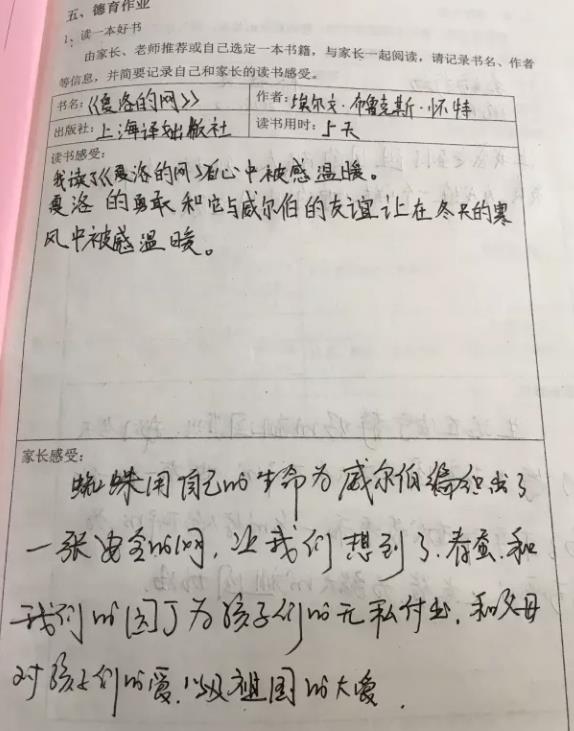 五、德育作业
1、读一本好书
由家长、老师推荐或自己选定一本书籍，与家长一起阅读，请记录书名、作者
等信息，并简要记录自己和家长的读书感受。
书名：《夏洛的网》 作者：埃尔文·布鲁克斯·怀特
出版社：上海译文出版社 读书用时：5天
读书感受：
我读了《夏洛的网》后心中被感温暖。
夏洛的勇敢和它与威尔伯的友谊让在冬天的寒
风中被感温暖。
家长感受：
蜘蛛用自己的生命为威尔伯编织出了
一张安全的网，让我们想到了，春蚕，和
我们的园丁为孩子们的无私付出，和父母
对孩子们的爱，以及祖国的大爱．